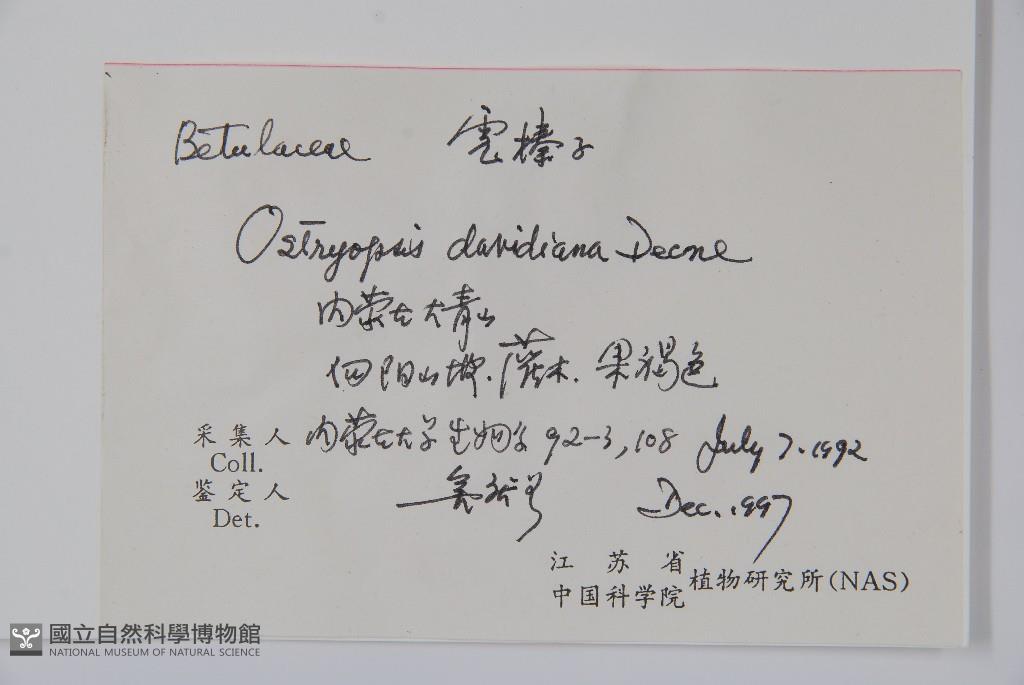 Betulaceae 虎榛子
Ostryopsis davidiana Decne
内蒙古大青山
阳山坡. 灌木. 果褐色
采集人 内蒙古大学生物系 92-3,108 July 7. 1992
Coll.
鉴定人 Dec. 1997
Det.
江苏省
中国科学院 植物研究所(NAS)
國立自然科學博物館
NATIONAL MUSEUM OF NATURAL SCIENCE